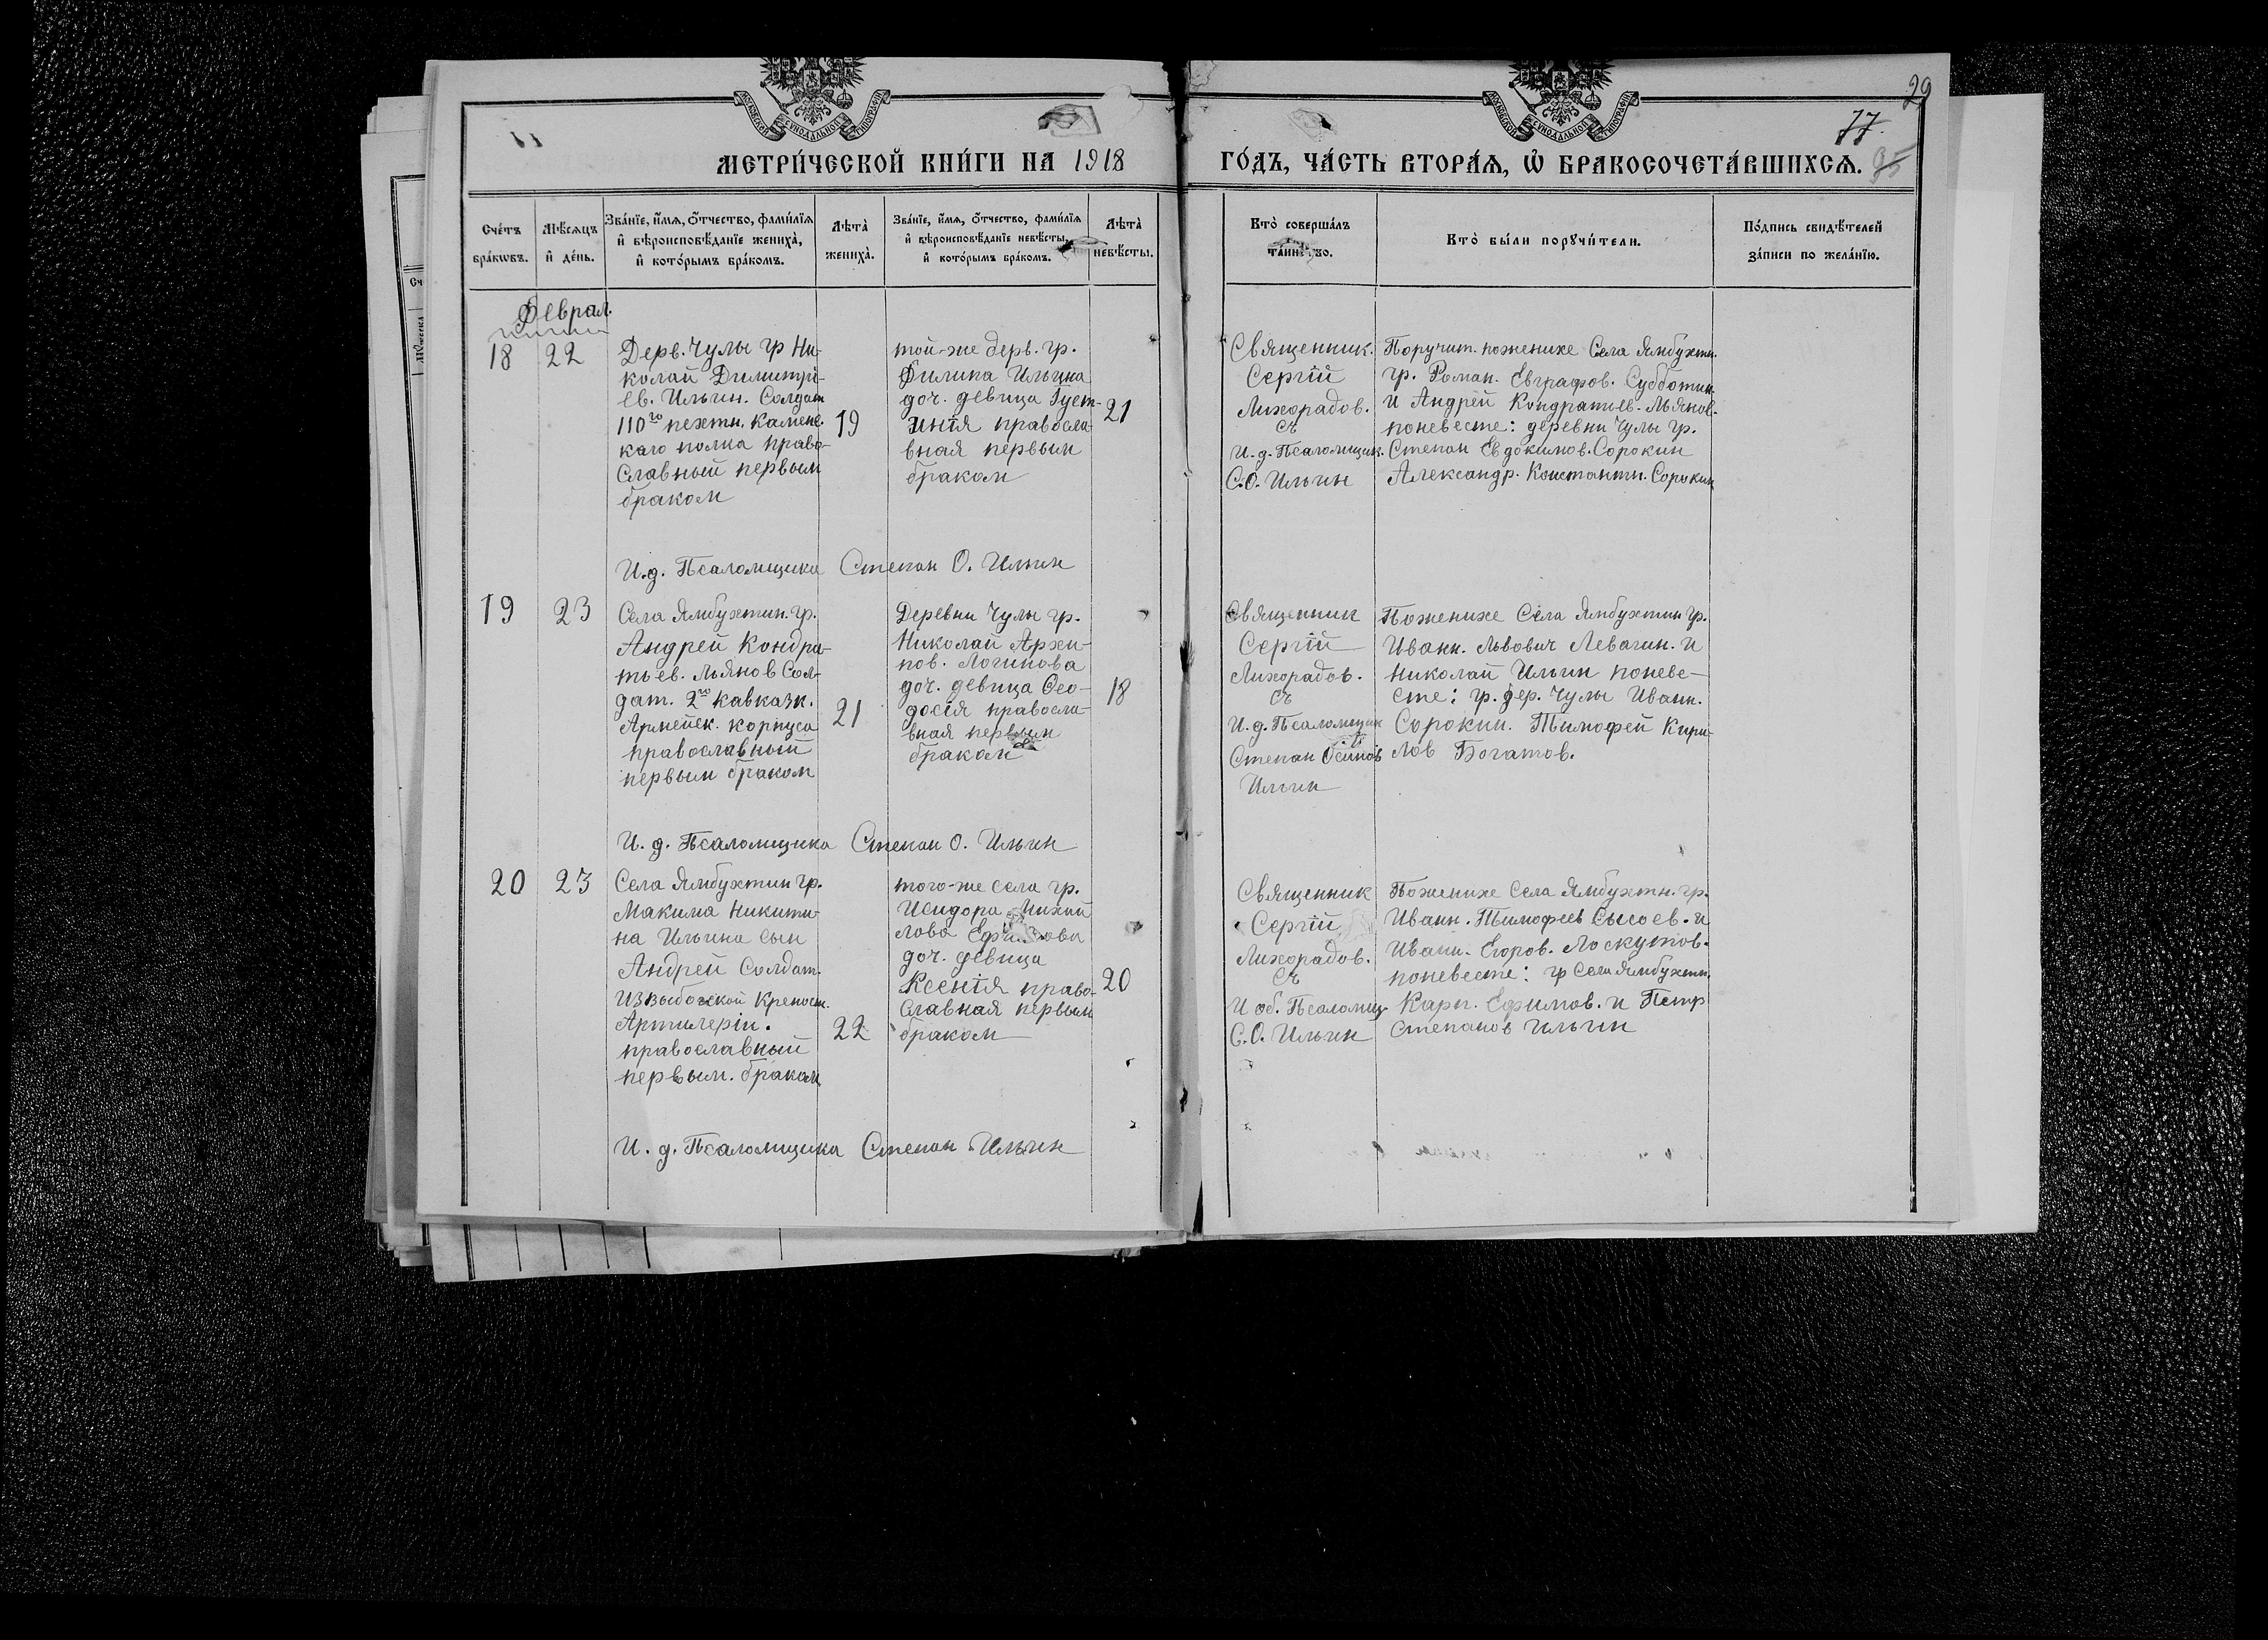 29
77.
95
МЕТРИ́ЧЕСКОЙ КНИ́ГИ НА 1918
ГО́ДЪ, ЧА́СТЬ ВТОРА́Я, Ѡ҆ БРАКОСОЧЕТА́ВШИХСЯ.
Сче́тъ
бра́кѡвъ.
Мѣ́сяцъ
и҆ де́нь.
Зва́нїе, и҆́мя, ѻ҆́тчество, фами́лїя
и҆ вѣроисповѣ́данїе жениха̀,
и҆ кото́рымъ бра́комъ.
Лѣта̀
жениха̀.
Зва́нїе, и҆́мя, ѻ҆́тчество, фами́лїя
и҆ вѣроисповѣ́данїе невѣ́сты,
и҆ кото́рымъ бра́комъ.
Лѣта̀
невѣ́сты.
Кто̀ соверша́лъ
та́инство.
Кто̀ бы́ли порꙋчи́тели.
По́дпись свидѣ́телей
за́писи по жела́нїю.
Феврал.
18
22
Дерв. Чулы гр Ни-
колай Димитрі-
ев. Ильин. Солдат
110го пехтн. Каменс.
каго полка право-
славный первым
браком
19
той-же дерв. гр.
Филипа Ильина
доч. девица Густ-
инія правосла-
вная первым
браком
21
Священник.
Сергій
Лихорадов.
съ
И.д. Псаломщик.
С.О. Ильин
Поручит. поженихе Села Ямбухтин.
гр. Роман. Евграфов. Субботин
и Андрей Кондратьев. Льянов.
поневесте: деревни Чулы гр.
Степан Евдокимов. Сорокин
Александр. Константн. Сорокин
И.д. Псаломщика Степан О. Ильин
19
23
Села Ямбухтин. гр.
Андрей Кондра-
тьев. Льянов Сол-
дат. 2го Кавказк.
Армейск. корпуса
православный
первым браком
21
Деревни Чулы гр.
Николай Архи-
пов. Логинова
доч. девица Ѳео-
досія правосла-
вная первым
браком
18
Священник
Сергій
Лихорадов.
съ
И.д. Псаломщик
Степан Осипов
Ильин
Поженихе Села Ямбухтин гр.
Иванн. Львович Левагин. и
Николай Ильин поневе-
сте: гр. дер. Чулы Иванн.
Сорокин. Тимофей Кири-
лов Богатов.
И.д. Псаломщика Степан О. Ильин
20
23
Села Ямбухтин гр.
Макима Никити-
на Ильина сын
Андрей Солдат.
Извыбогской Крепост.
Артилеріи.
православный
первым. браком
22
того-же села гр.
Исидора Михай
лова Ефимова
доч. девица
Ксенія право-
славная первым
браком
20
Священник
Сергій
Лихорадов.
съ
И об. Псаломщ
С.О. Ильин
Поженихе Села Ямбухтн. гр.
Иванн. Тимофеев Сысоев. и
Иванн. Егоров. Лоскутов.
поневесте: гр Села Ямбухтн.
Карп. Ефимов. и Петр
Степанов Ильин
И.д. Псаломщика Степан Ильин